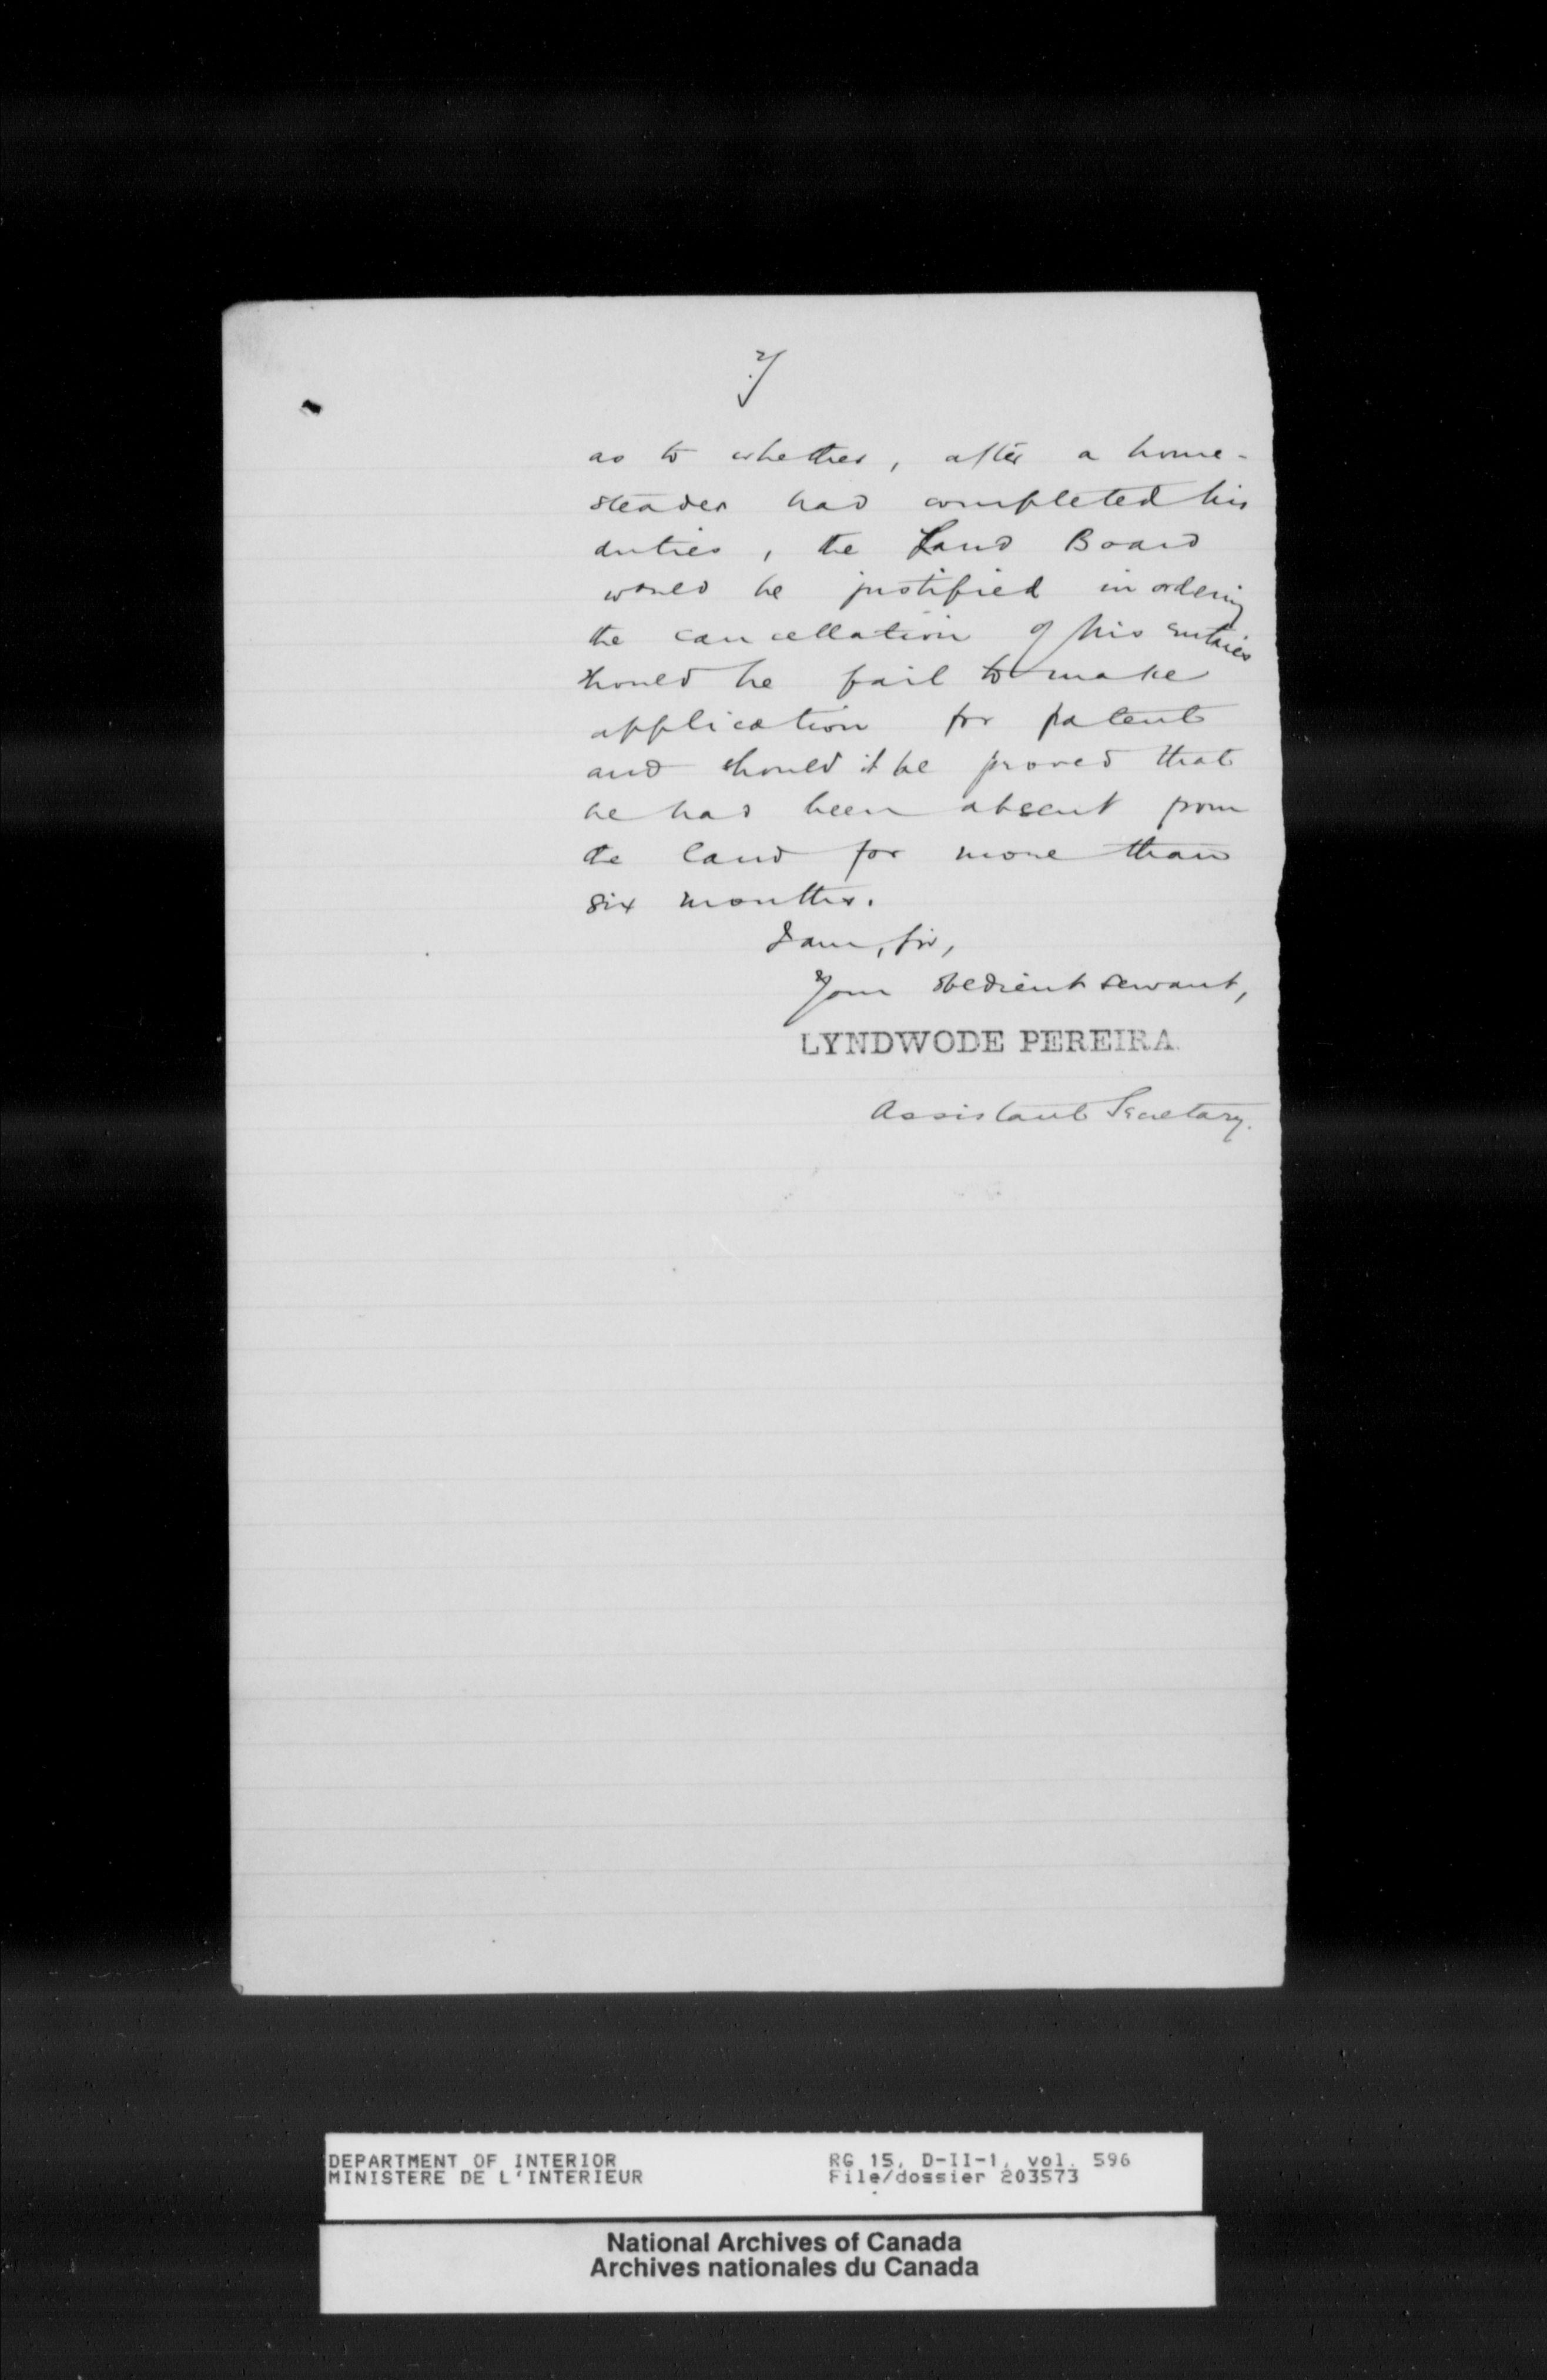 2/
as to whether, after a home-
steader had completed his
duties, the Land Board
would be justified in ordering
the cancellation of his entries
should he fail to make
application for patent
and should it be proved that
he had been absent from
the land for more than
six months.
I am, Sir,
Your obedient servant,
LYNDWODE PEREIRA.
Assistant Secretary.
DEPARTMENT OF INTERIOR RG 15, D-II-1, vol. 596
MINISTERE DE L'INTERIEUR File/dossier 203573
National Archives of Canada
Archives nationales du Canada